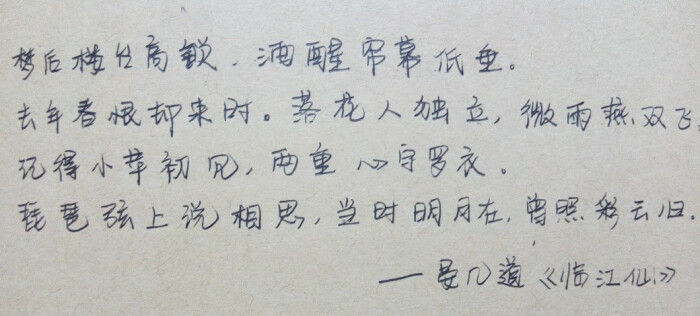 梦后楼台高锁，酒醒帘幕低垂。
去年春恨却来时。落花人独立，微雨燕双飞
记得小苹初见，两重心字罗衣。
琵琶弦上说相思，当时明月在，曾照彩云归.
——晏几道《临江仙》